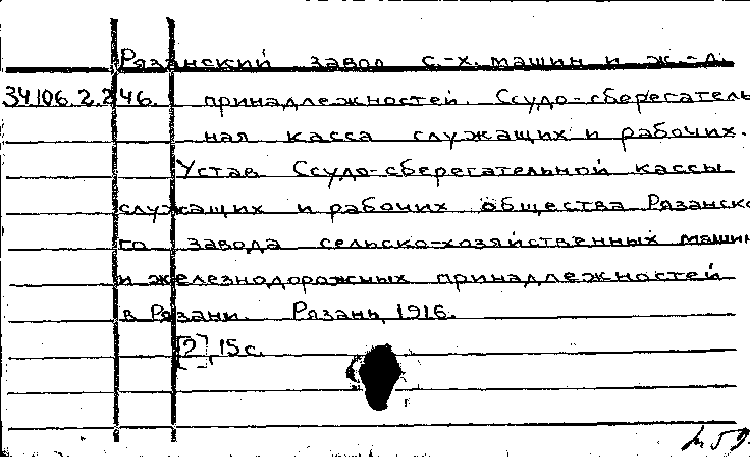 Рязанский завод с.-х. машин и ж.-д.
34106.2.246. принадлежностей. Ссудо-сберегатель
ная касса служащих и рабочих.
Устав Ссудо-сберегательной кассы
служащих и рабочих общества Рязанско
го завода сельско-хозяйственных машин
и железнодорожных принадлежностей
в Рязани. Рязань, 1916.
[2], 15 с.